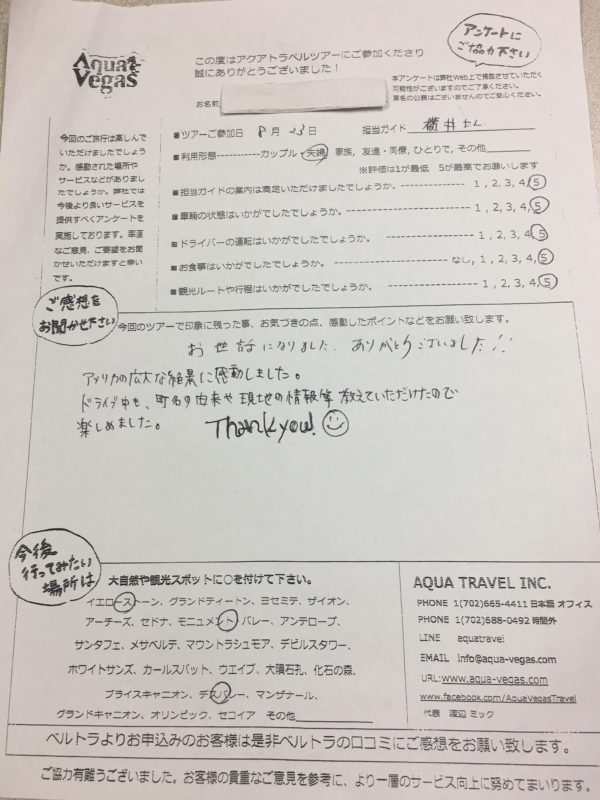 Aqua Vegas
この度はアクアトラベルツアーにご参加くださり
誠にありがとうございました！
アンケートに
ご協力下さい
本アンケートは弊社Web上で掲載させていただく
可能性がございますのでご了承ください。
実名の公表はございませんのでご安心ください。
お名前
今回のご旅行は楽しんで
いただけましたでしょう
か。感動された場所や
サービスなどがありまし
たでしょうか。弊社では
今後より良いサービスを
提供すべくアンケートを
実施しております。率直
なご意見、ご要望をお聞
かせいただけますと幸い
です。
■ツアーご参加日 8月23日 担当ガイド 横井さん
■利用形態------------カップル・夫婦, 家族, 友達・同僚, ひとりで, その他
※評価は1が最低 5が最高でお願いします
■担当ガイドの案内は満足いただけましたでしょうか。 1, 2, 3, 4, 5
■車輌の状態はいかがでしたでしょうか。 1, 2, 3, 4, 5
■ドライバーの運転はいかがでしたでしょうか。 1, 2, 3, 4, 5
■お食事はいかがでしたでしょうか。 なし, 1, 2, 3, 4, 5
■観光ルートや行程はいかがでしたでしょうか。 1, 2, 3, 4, 5
ご感想を
お聞かせ下さい
今回のツアーで印象に残った事、お気づきの点、感動したポイントなどをお願い致します。
お世話になりました。ありがとうございました!!
アメリカの広大な絶景に感動しました。
ドライブ中も、町名の由来や現地の情報等教えていただけたので
楽しめました。 Thank you!
今後
行ってみたい
場所は
大自然や観光スポットに○を付けて下さい。
イエローストーン、グランドティートン、ヨセミテ、ザイオン、
アーチーズ、セドナ、モニュメントバレー、アンテロープ、
サンタフェ、メサベルデ、マウントラシュモア、デビルスタワー、
ホワイトサンズ、カールスバット、ウエイブ、大隕石孔、化石の森、
ブライスキャニオン、デスバレー、マンザナール、
グランドキャニオン、オリンピック、セコイア その他
AQUA TRAVEL INC.
PHONE 1(702)665-4411 日本語 オフィス
PHONE 1(702)688-0492 時間外
LINE aquatravel
EMAIL info@aqua-vegas.com
URL:www.aqua-vegas.com
www.facebook.com/AquaVegasTravel
代表 渡辺 ミック
ベルトラよりお申込みのお客様は是非ベルトラの口コミにご感想をお願い致します。
ご協力有難うございました。お客様の貴重なご意見を参考に、より一層のサービス向上に努めてまいります。